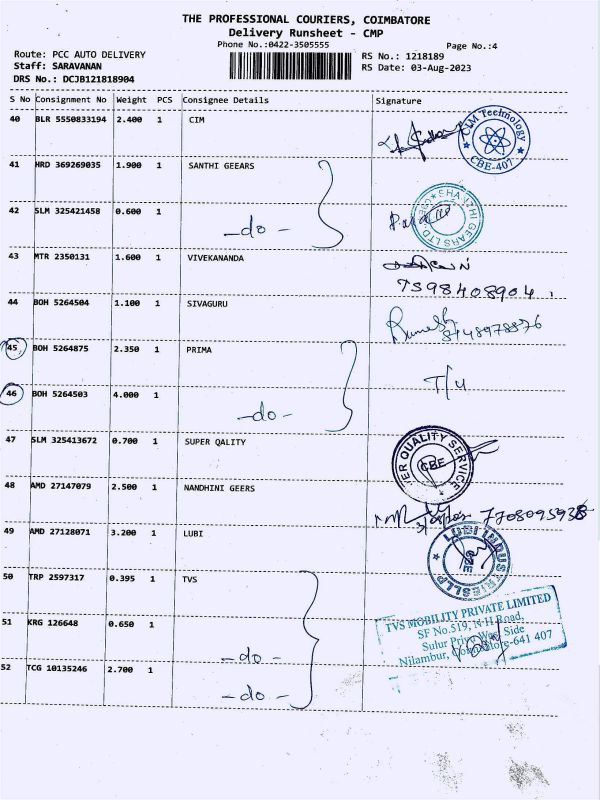 THE PROFESSIONAL COURIERS, COIMBATORE
Delivery Runsheet - CMP
Phone No.:0422-3505555
Page No.:4
Route: PCC AUTO DELIVERY
RS No.: 1218189
Staff: SARAVANAN
RS Date: 03-Aug-2023
DRS No.: DCJB121818904
S No Consignment No Weight PCS Consignee Details Signature
40 BLR 5550833194 2.400 1 CIM
CIM Technology
CBE-407
41 HRD 369269035 1.900 1 SANTHI GEEARS
42 SLM 325421458 0.600 1 -do-
GEARS LTD.
43 MTR 2350131 1.600 1 VIVEKANANDA
7598408904.
44 BOH 5264504 1.100 1 SIVAGURU
45 BOH 5264875 2.350 1 PRIMA
46 BOH 5264503 4.000 1 -do-
47 SLM 325413672 0.700 1 SUPER QALITY
ER QUALITY SERVICE
CBE
48 AMD 27147079 2.500 1 NANDHINI GEERS
49 AMD 27128071 3.200 1 LUBI
LUBI INDUSTRIES LLP
50 TRP 2597317 0.395 1 TVS
TVS MOBILITY PRIVATE LIMITED
SF No.519, N-H Road,
Sulur Side
Nilambur, Coimbatore-641 407
51 KRG 126648 0.650 1 -do-
52 TCG 10135246 2.700 1 -do-